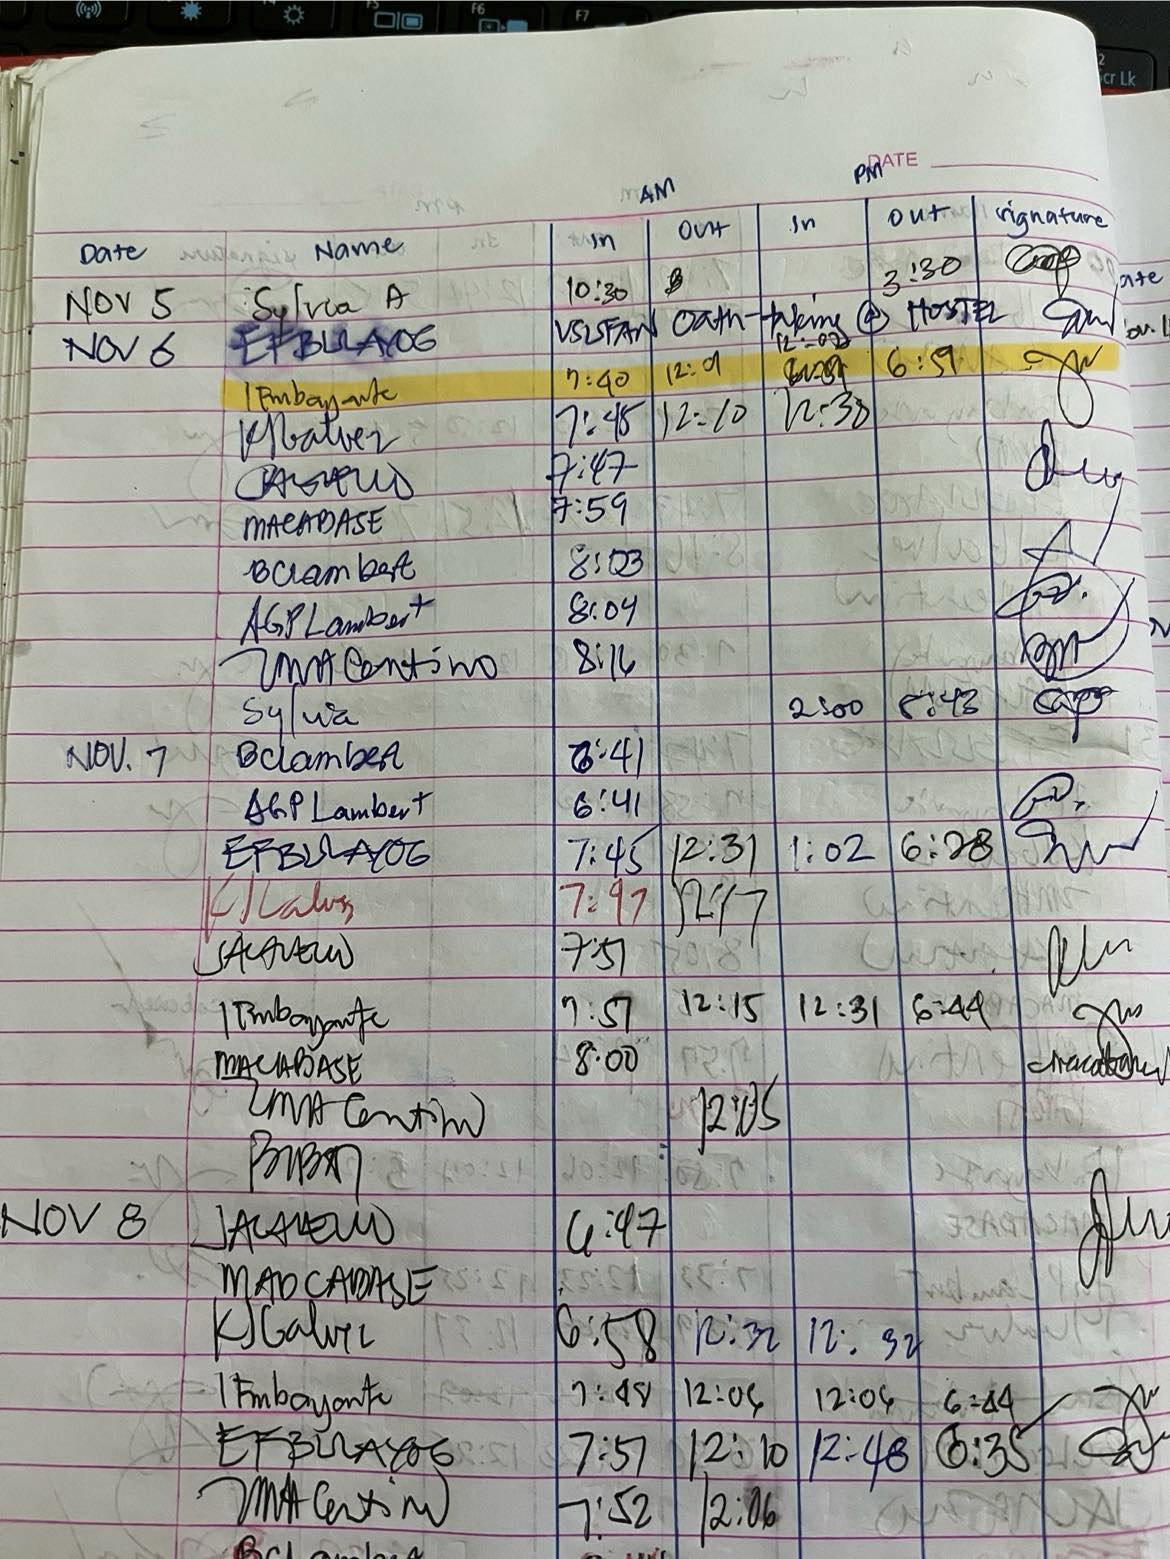 F5 F6 F7
cr Lk
DATE
AM PM
Date Name In Out In Out Signature
NOV 5 Sylvia A 10:30 3:30
NOV 6 EFBULAYOG VSUFAN Oath-taking @ HOSTEL
12:02
IEmbayante 7:40 12:01 6:59
KJGalvez 7:45 12:10 12:30
7:47
MACABASE 7:59
BClambert 8:03
AGPLambert 8:04
TMACentino 8:16
Sylvia 2:00 5:43
NOV. 7 BClambert 6:41
AGPLambert 6:41
EFBULAYOG 7:45 12:31 1:02 6:28
KJGalvez 7:47 12:17
7:51
IEmbayante 7:57 12:15 12:31 6:44
MACABASE 8:00
TMACentino 12:05
NOV 8 6:47
MADCABASE
KJGalvez 6:58 12:32 12:32
IEmbayante 7:48 12:06 12:06 6:44
EFBULAYOG 7:51 12:10 12:48 6:35
TMACentino 7:52 12:06
BClambert